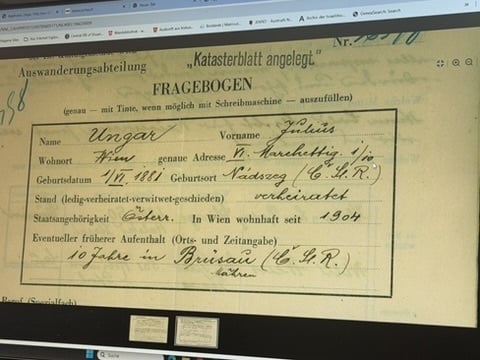 Auswanderungsabteilung
„Katasterblatt angelegt."
Nr.
FRAGEBOGEN
(genau — mit Tinte, wenn möglich mit Schreibmaschine — auszufüllen)
Name Ungar Vorname Julius
Wohnort Wien genaue Adresse VI. Marchettig. 1/10
Geburtsdatum 1/VI. 1881 Geburtsort Nádszeg (Č. St. R.)
Stand (ledig-verheiratet-verwitwet-geschieden) verheiratet
Staatsangehörigkeit Österr. In Wien wohnhaft seit 1904
Eventueller früherer Aufenthalt (Orts- und Zeitangabe)
10 Jahre in Brüsau (Č. St. R.)
Mähren
Beruf (Spezialfach)
Suche